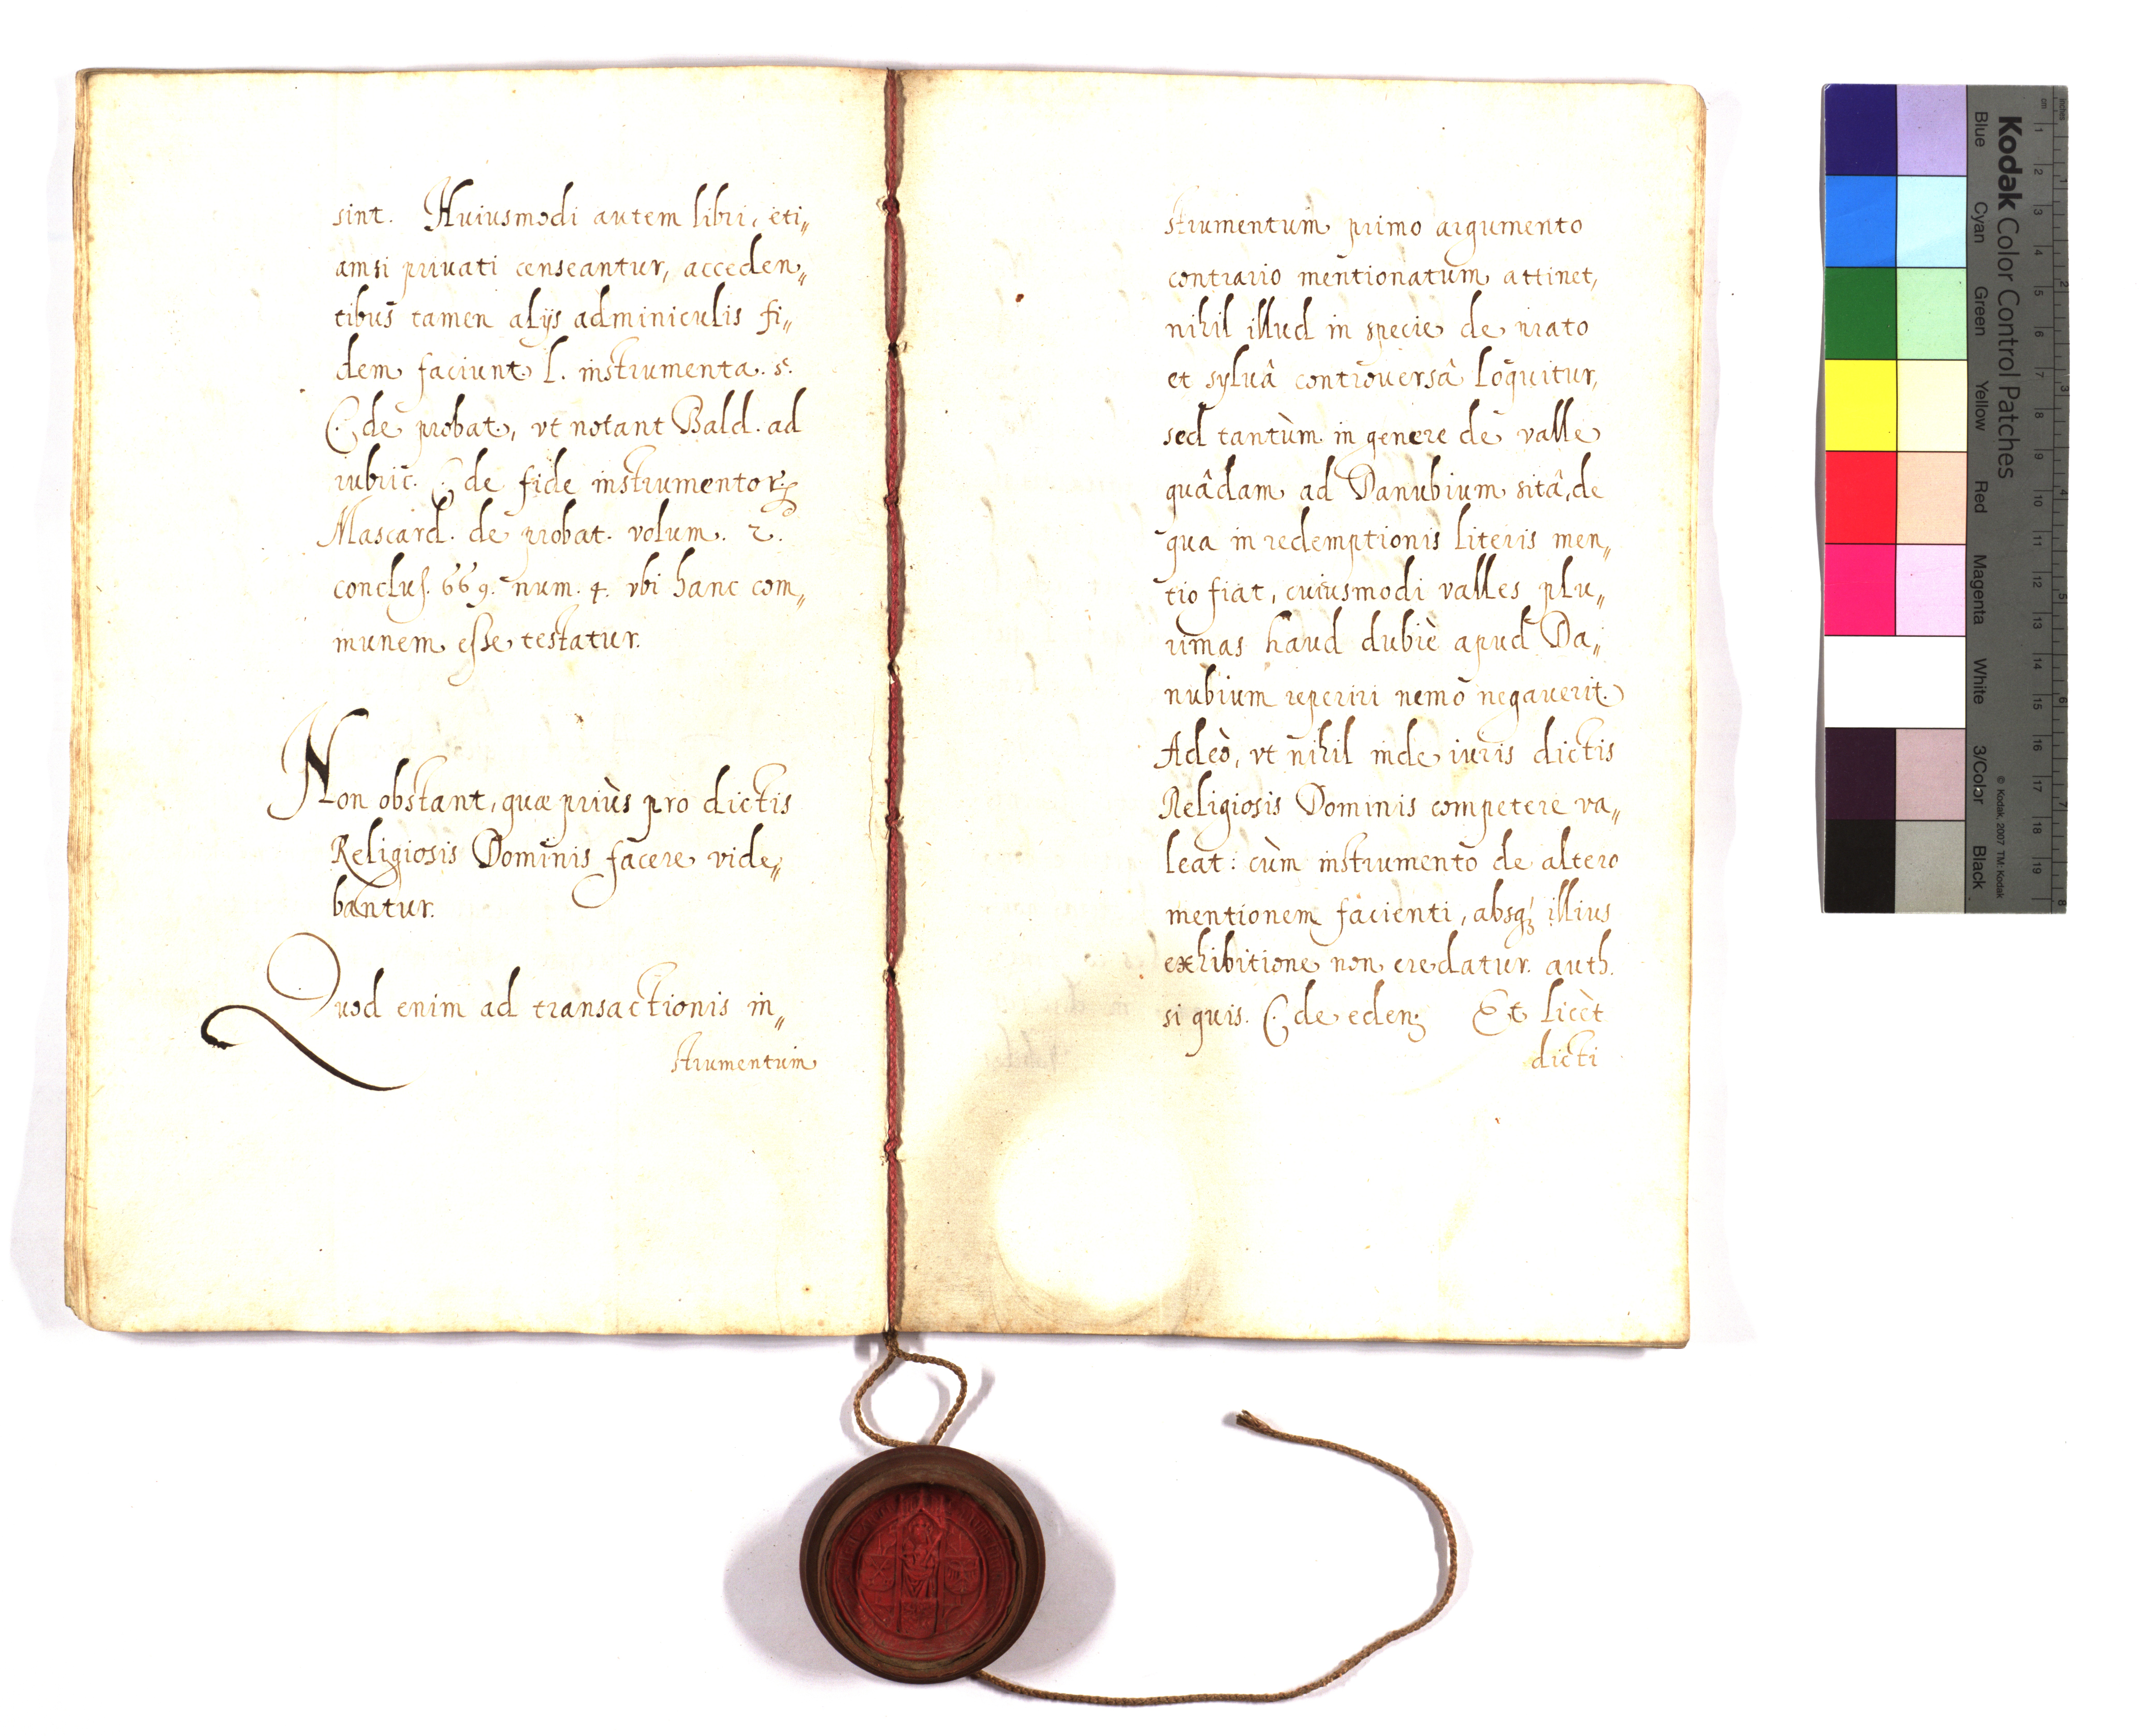 sint. Huiusmodi autem libri, eti„
amsi priuati censeantur, acceden„
tibus tamen alijs adminiculis fi„
dem faciunt. l. instrumenta. 5.
C. de probat., vt notant Bald. ad
rubric. C. de fide instrumentoꝝ
Mascard. de probat. volum. 2.
conclus. 669. num. 4. vbi hanc com„
munem esse testatur.
Non obstant, quæ priùs pro dictis
Religiosis Dominis facere vide„
bantur.
Quod enim ad transactionis in„
strumentum
strumentum primo argumento
contrario mentionatum attinet,
nihil illud in specie de prato
et syluâ controuersâ loquitur,
sed tantùm in genere de valle
quâdam ad Danubium sitâ, de
qua in redemptionis literis men„
tio fiat, cuiusmodi valles plu„
rimas haud dubiè apud Da„
nubium reperiri nemo negauerit.
Adeò, vt nihil inde iuris dictis
Religiosis Dominis competere va„
leat: cùm instrumento de altero
mentionem facienti, absqꝫ illius
exhibitione non credatur. auth.
si quis. C. de eden; Et licèt
dicti
Kodak Color Control Patches
Blue Cyan Green Yellow Red Magenta White 3/Color Black
© Kodak, 2007 TM: Kodak
cm 1 2 3 4 5 6 7 8 9 10 11 12 13 14 15 16 17 18 19
inches 1 2 3 4 5 6 7 8